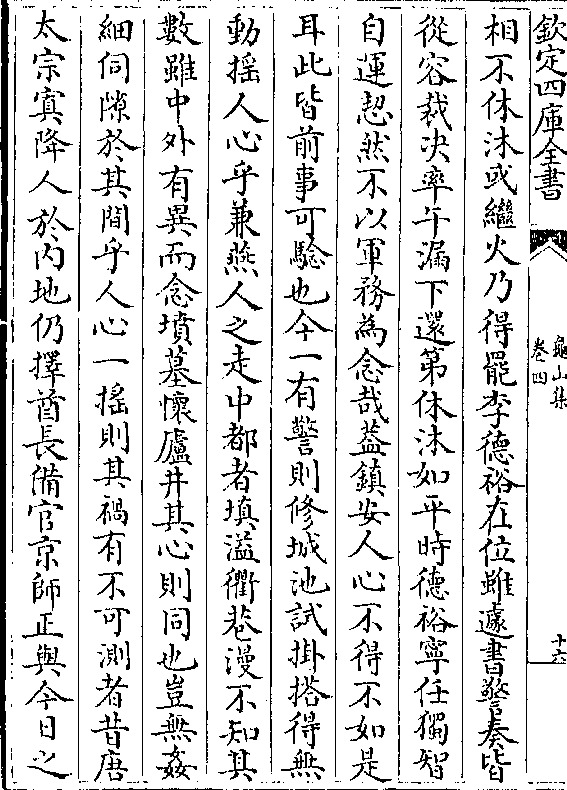 欽定四庫全書
龜山集
卷四
十六
相不休沐或繼火乃得罷李德裕在位雖遽書警奏皆
從容裁決率午漏下還第休沐如平時德裕寧任獨智
自運恝然不以軍務為念哉蓋鎮安人心不得不如是
耳此皆前事可驗也今一有警則修城池試掛搭得無
動揺人心乎兼燕人之走中都者填溢衢巷漫不知其
數雖中外有異而念墳墓懷廬井其心則同也豈無姦
細伺隙於其間乎人心一揺則其禍有不可測者昔唐
太宗寘降人於内地仍擇酋長備官京師正與今日之